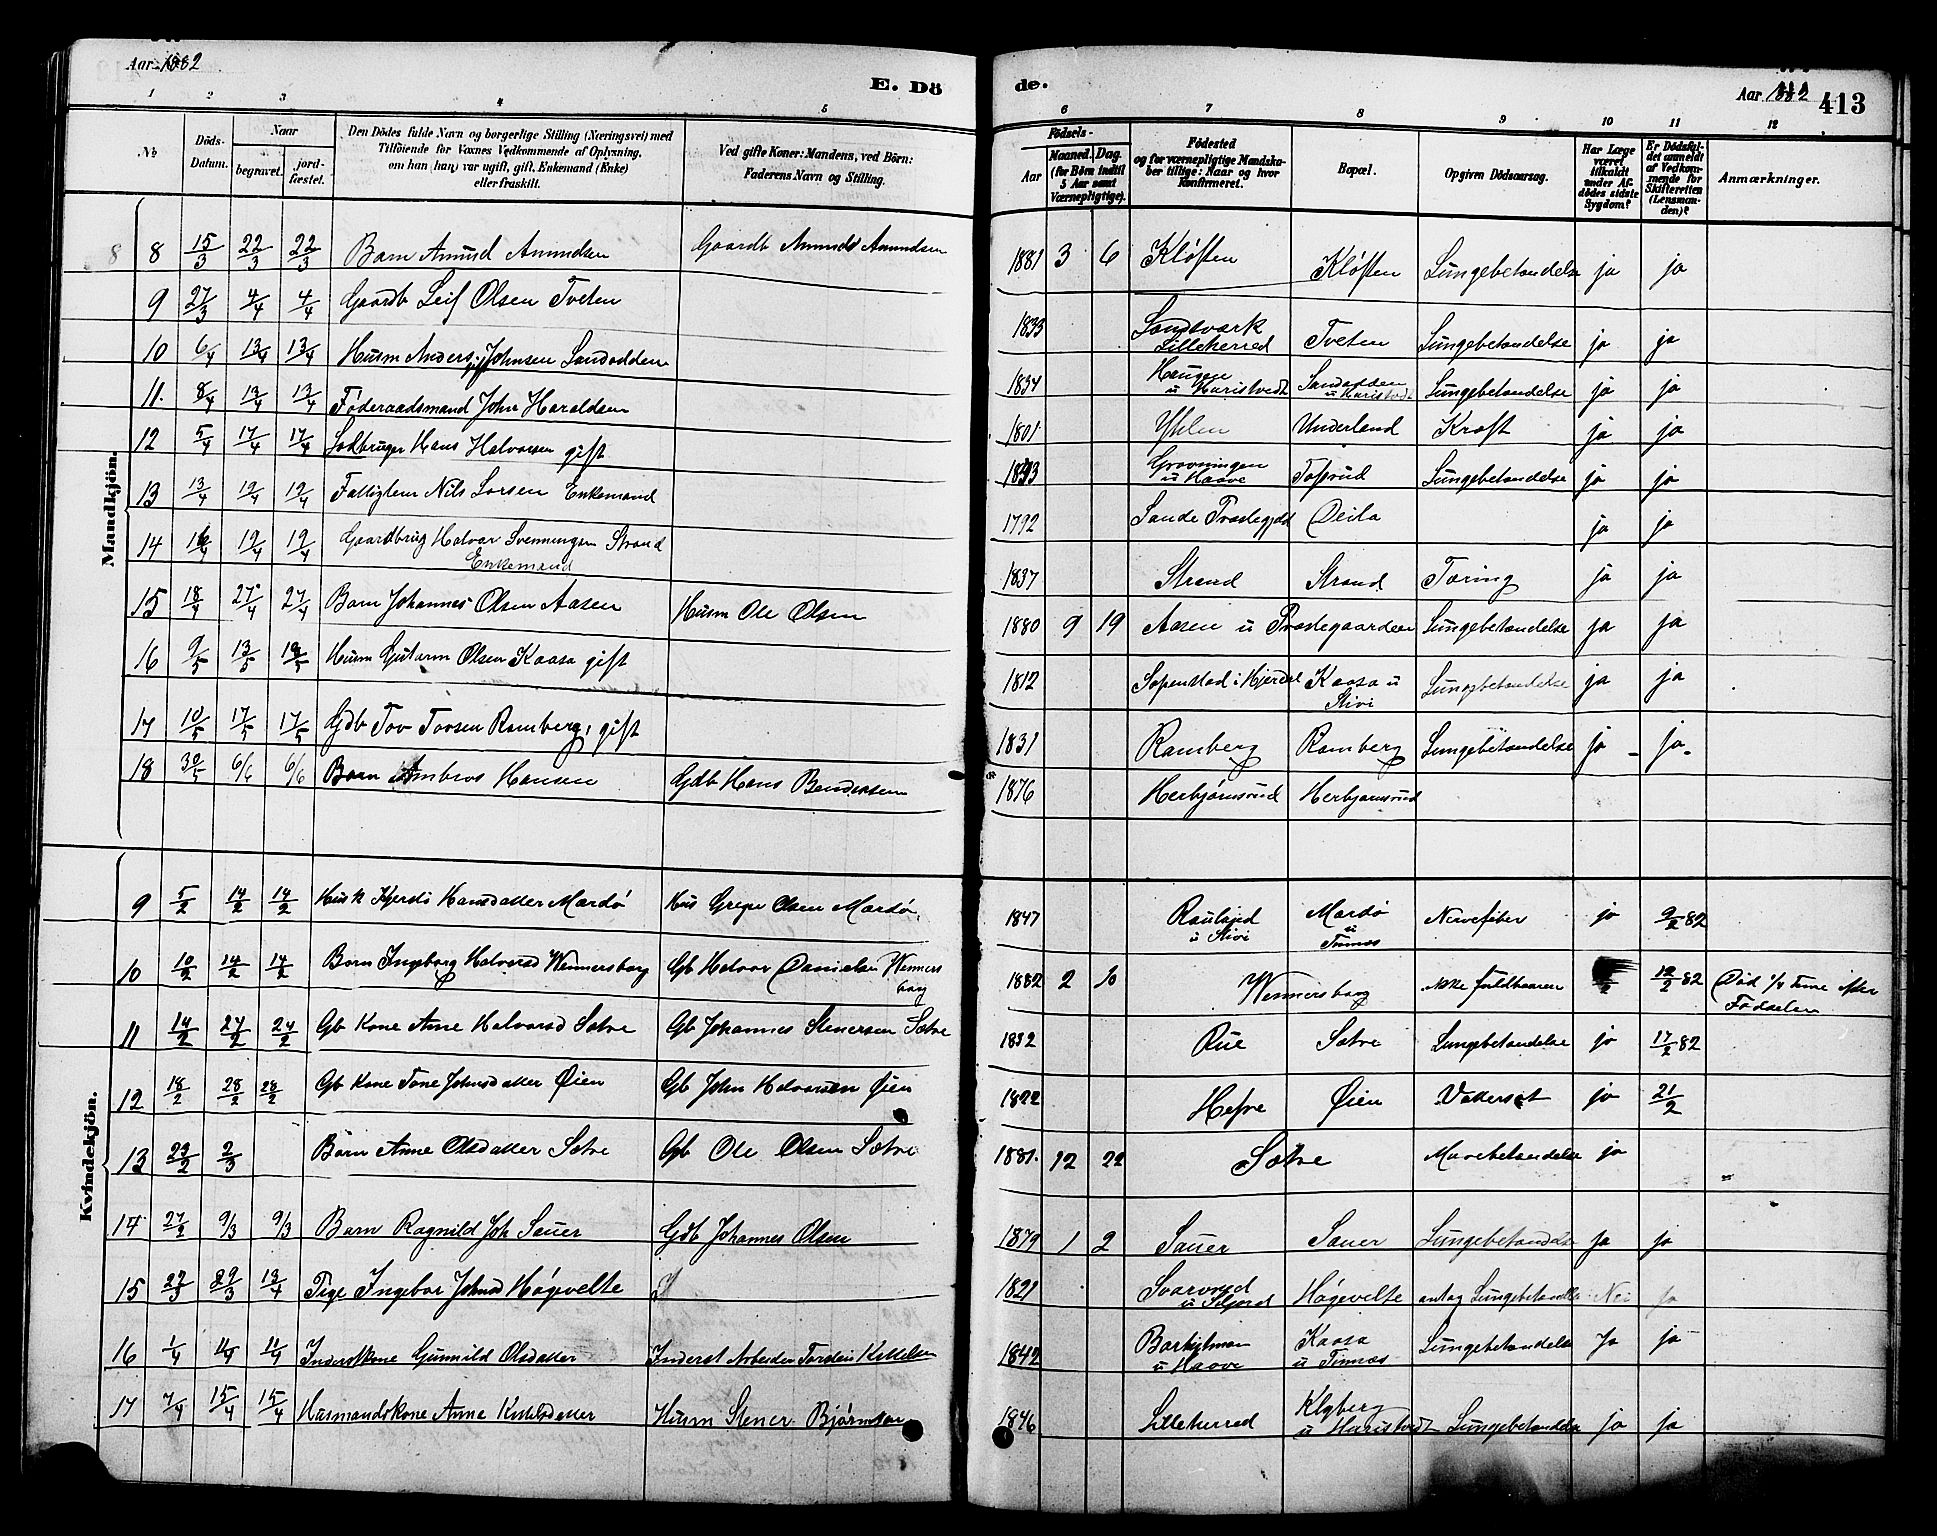 Aar 1882
E. Dö
de.
Aar 1882 413
1 2 3 4 5 6 7 8 9 10 11 12
No
Döds-Datum.
Naar
begravet.
jordfæstet.
Den Dödes fulde Navn og borgerlige Stilling (Næringsvei) med
Tilföiende for Voxnes Vedkommende af Oplysning.
om han (hun) var ugift, gift, Enkemand (Enke)
eller fraskilt.
Ved gifte Koner: Mandens, ved Börn:
Faderens Navn og Stilling.
Födsels-
Aar
Maaned. Dag.
(for Börn indtil
5 Aar samt
Værnepligtige).
Födested
og for værnepligtige Mandska-
ber tillige: Naar og hvor
konfirmeret.
Bopæl.
Opgiven Dödsaarsag.
Har Læge
været
tilkaldt
under Af-
dödes sidste
Sygdom?
Er Dödsfal-
det anmeldt
af Vedkom-
mende for
Skifteretten
(Lensman-
den)?
Anmærkninger.
Mandkjön.
8 8 15/3 22/3 22/3 Barn Amund Amundsen Gaardb Amund Amundsen 1881 3 6 Kløften Kløften Lungebetændelse ja ja
9 27/3 4/4 4/4 Gaardb Leif Olsen Tveten 1833 Sandsværk Lilleherred Tveten Lungebetændelse ja ja
10 6/4 13/4 13/4 Husm Anders Johnsen Sandodden gift 1834 Haugen u Haristvedt Sandodden u Haristvedt Lungebetændelse ja ja
11. 8/4 13/4 13/4 Føderaadsmand John Haraldsen 1801 Underland Kræft ja ja
12 5/4 17/4 17/4 Jordbruger Hans Halvorsen gift Grovningen u Haave Lungebetændelse ja ja
13 13/4 19/4 19/4 Fattiglem Nils Larsen Enkemand 1792 Sande Præstegjeld ja ja
14 19/4 19/4 Gaardbrug Halvor Svenningsen Strand Enkemand 1837 Strand Strand Tæring ja ja
15 18/4 27/4 27/4 Barn Johannes Olsen Aasen Husm Ole Olsen 1880 9 19 Aasen u Præstegaarden Lungebetændelse ja ja
16 9/5 13/5 Husm Gutorm Olsen Kaasa gift 1812 Sopenstad i Hjerdal Kaasa u Stivi Lungebetændelse ja ja
17 10/5 17/5 17/5 Gdb Tov Tovsen Ramberg, gift 1831 Ramberg Ramberg Lungebetændelse ja ja
18 30/5 6/6 6/6 Barn Ambros Hansen Gdb Hans Bendixsen 1876 Herbjørnsrud Herbjørnsrud
Kvindekjön.
9 5/2 14/2 14/2 Husk Kjersti Hansdatter Mardø Hus Greger Olsen Mardø 1847 Rauland u Stivi Mardø u Tinnæs Nervefeber ja 9/2 82
10 10/2 14/2 14/2 Barn Ingeborg Halvorsd Wennersborg Gb Halvor Danielsen Wennersborg 1882 2 10 Wennersborg ikke fuldbaaren 12/2 82 Død 1/4 Time efter Fødselen
11 14/2 24/2 24/2 Gb Kone Anne Halvorsd Sætre Gb Johannes Stenersen Sætre 1832 Rue Sætre Lungebetændelse ja 17/2 82
12 18/2 28/2 28/2 Gb Kone Tone Johnsdatter Øien Gb John Halvorsen Øien 1822 Hefre Øien Vattersot ja 21/2
13 23/2 2/3 Barn Anne Olsdatter Sætre Gb Ole Olsen Sætre 1881. 12 22 Sætre Mavebetændelse ja
14 27/2 9/3 9/3 Barn Ragnild Joh Sauer Gdb Johannes Olsen 1879 1 2 Sauer Sauer Lungebetændelse Ja ja
15 29/3 13/4 Pige Ingebor Johnsd Høgevelte 1821 Svarverud u Skjord Høgevelte antag Lungebetændelse Nei ja
16 1/4 11/4 11/4 Inderstkone Gunnild Olsdatter Inderst Arbeider Torden Kittelsen 1842 u Haave Kaasa u Tinnæs Lungebetændelse Ja ja
17 7/4 15/4 15/4 Husmandskone Anne Kittelsdatter Husm Stener Bjørnson 1846 Lilleherred Klyberg u Haristvedt Lungebetændelse ja ja